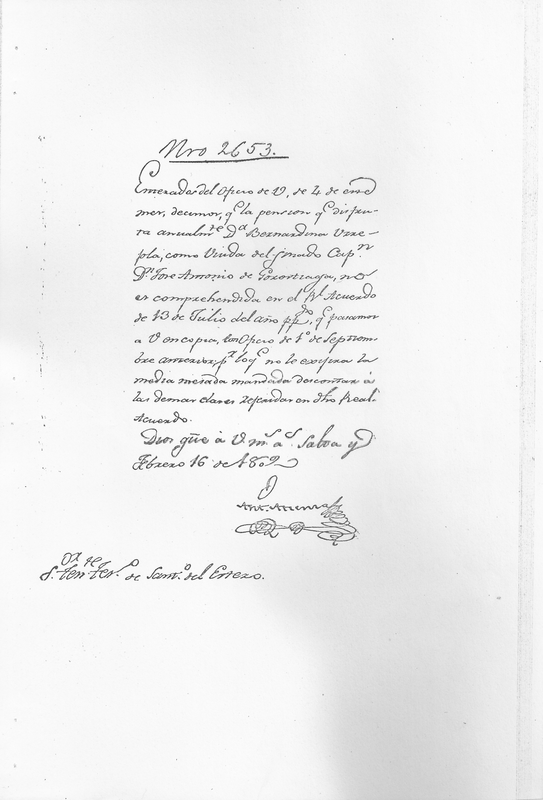 Nro 2653.
Enterados del Oficio de V, de 4 de este
mes, decimos, q.e la pension q.e disfru-
ta anualm.te D.a Bernardina Vice-
pla, como Viuda del finado Cap.n
D.n Jose Antonio de Goxortiaga, no
es comprehendida en el R.l Acuerdo
de 13 de Julio del año pp.do, q.e pasamos
a V en copia, con Oficio de 1.o de Septiem-
bre anterior, p.r lo q.e no le exigira la
media mesada mandada descontar à
las demas clases en dho Real
Acuerdo.
Dios güe à V. m.s a.s Salta y
Febrero 16 de 1802
S. Ten.te Tes.o de Sant.o del Estero.